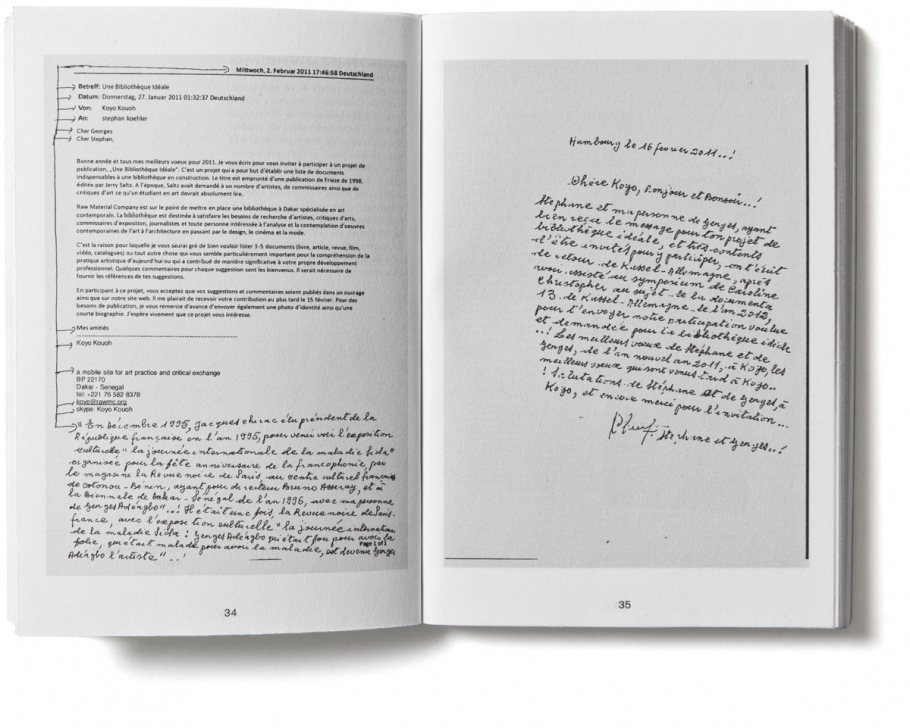 Mittwoch, 2. Februar 2011 17:46:58 Deutschland
Betreff: Une Bibliothèque Idéale
Datum: Donnerstag, 27. Januar 2011 01:32:37 Deutschland
Von: Koyo Kouoh
An: stephan koehler
Cher Georges
Cher Stephan,
Bonne année et tous mes meilleurs voeux pour 2011. Je vous écris pour vous inviter à participer à un projet de
publication, „Une Bibliothèque Idéale". C'est un projet qui a pour but d'établir une liste de documents
indispensables à une bibliothèque en construction. Le titre est emprunté d'une publication de Frieze de 1998,
éditée par Jerry Saltz. A l'époque, Saltz avait demandé à un nombre d'artistes, de commissaires ainsi que de
critiques d'art ce qu'un étudiant en art devrait absolument lire.
Raw Material Company est sur le point de mettre en place une bibliothèque à Dakar spécialisée en art
contemporain. La bibliothèque est destinée à satisfaire les besoins de recherche d'artistes, critiques d'arts,
commissaires d'exposition, journalistes et toute personne intéressée à l'analyse et la contemplation d'oeuvres
contemporaines de l'art à l'architecture en passant par le design, le cinéma et la mode.
C'est la raison pour laquelle je vous saurai gré de bien vouloir lister 3-5 documents (livre, article, revue, film,
vidéo, catalogues) ou tout autre chose qui vous semble particulièrement important pour la compréhension de la
pratique artistique d'aujourd'hui ou qui a contribué de manière significative à votre propre développement
professionnel. Quelques commentaires pour chaque suggestion sont les bienvenus. Il serait nécessaire de
fournir les références de tes suggestions.
En participant à ce projet, vous acceptez que vos suggestions et commentaires soient publiés dans un ouvrage
ainsi que sur notre site web. Il me plairait de recevoir votre contribution au plus tard le 15 février. Pour des
besoins de publication, je vous remercie d'avance d'envoyer également une photo d'identité ainsi qu'une
courte biographie. J'espère vivement que ce projet vous intéresse.
Mes amitiés
Koyo Kouoh
a mobile site for art practice and critical exchange
BP 22170
Dakar - Senegal
tel: +221 76 582 8378
koyo@rawmc.org
skype: Koyo Kouoh
" En décembre 1995, Jacques chirac élu président de la
République française en l'an 1995, pour venir voir l'exposition
culturelle " la journée internationale de la maladie Sida"
organisée pour la fête anniversaire de la francophonie, par
le magasine la Revue noire de Paris, au centre culturel français
de cotonou - Bénin, ayant pour directeur Bruno et à
la Biennale de Dakar - Sénégal de l'an 1996, avec ma personne
de Georges Adéagbo"..! Il était une fois, la Revue noire de Paris-
france, avec l'exposition culturelle " la journée internationale
de la maladie Sida : Georges Adéagbo qui était fou pour avoir la
folie, qui était malade pour avoir la maladie, est devenu Georges
Page 1 of 1
Adéagbo l'artiste" ..!
34
Hambourg le 16 février 2011..!
Chère Koyo, Bonjour et Bonsoir..!
Stéphane et ma personne de Georges, ayant
bien reçu le message pour ton projet de
bibliothèque idéale, et très contents
d'être invités pour y participer, on t'écrit
de retour de Kassel-Allemagne, après
avoir assisté au symposium de Caroline
Christopher au sujet de la documenta
13 de Kassel-Allemagne de l'an 2012,
pour t'envoyer notre participation voulue
et demandée pour la bibliothèque idéale
..! Les meilleurs voeux de Stéphane et de
Georges, de l'an nouvel an 2011, à Koyo, les
meilleurs voeux qui sont venus tard à Koyo..
! Salutations de Stéphane et de Georges, à
Koyo, et encore merci pour l'invitation...
Stéphane et Georges..!
35